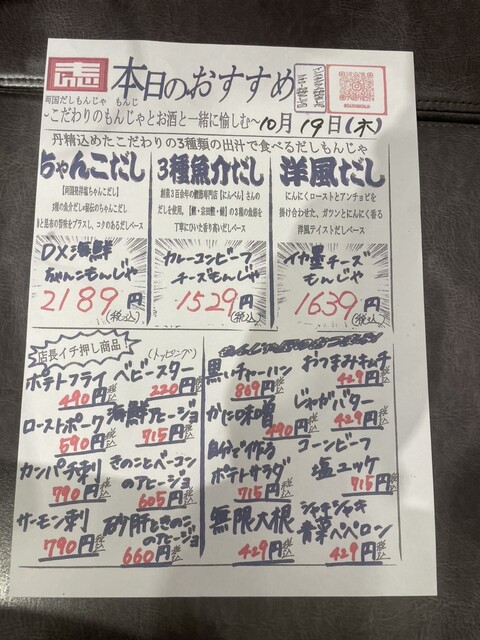 本日のおすすめ
両国だしもんじゃ もんじ
~こだわりのもんじゃとお酒と一緒に愉しむ~
10月19日(木)
丹精込めたこだわりの3種類の出汁で食べるだしもんじゃ
ちゃんこだし
【両国発祥塩ちゃんこだし】
3種の魚介だし秘伝のちゃんこだし
と昆布の旨味をプラスし、コクのあるだしベース
DX海鮮
ちゃんこもんじゃ
2189円
(税込)
3種魚介だし
創業3百余年の鰹節専門店【にんべん】さんの
だしを使用。【鰹・宗田鰹・鯖】の3種の魚節を
丁寧にひいた香り高いだしベース
カレーコンビーフ
チーズもんじゃ
1529円
(税込)
洋風だし
にんにくローストとアンチョビを
掛け合わせた、ガツンとにんにく香る
洋風テイストだしベース
イカ墨チーズ
もんじゃ
1639円
(税込)
店長イチ押し商品!
ポテトフライ
490円税込
ベビースター
(トッピング)
220円税込
ローストポーク
590円税込
海鮮アヒージョ
715円税込
カンパチ刺
790円税込
きのことベーコン
のアヒージョ
605円税込
サーモン刺
790円税込
砂肝ときのこ
のアヒージョ
660円税込
黒いチャーハン
869円税込
おつまみキムチ
429円税込
かに味噌
490円税込
じゃがバター
429円税込
自分で作る
ポテトサラダ
715円税込
コーンビーフ
塩ユッケ
715円税込
無限大根
429円税込
シャキシャキ
青菜ペペロン
429円税込